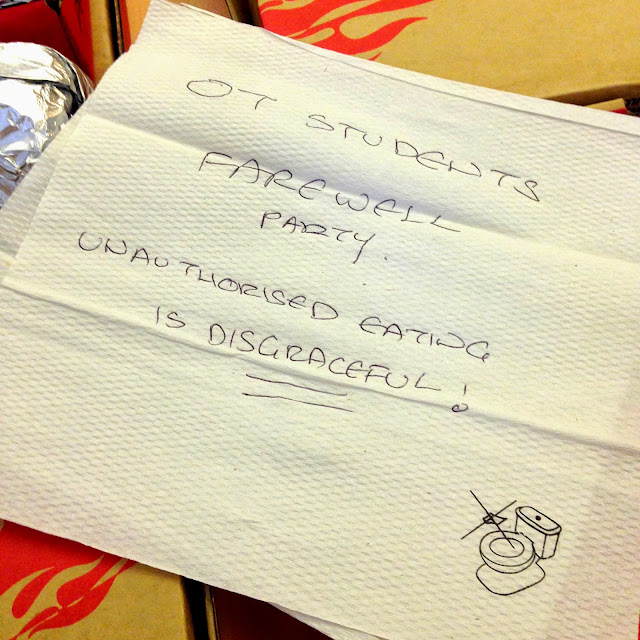 OT STUDENTS
FAREWELL
PARTY.
UNAUTHORISED EATING
IS DISGRACEFUL!